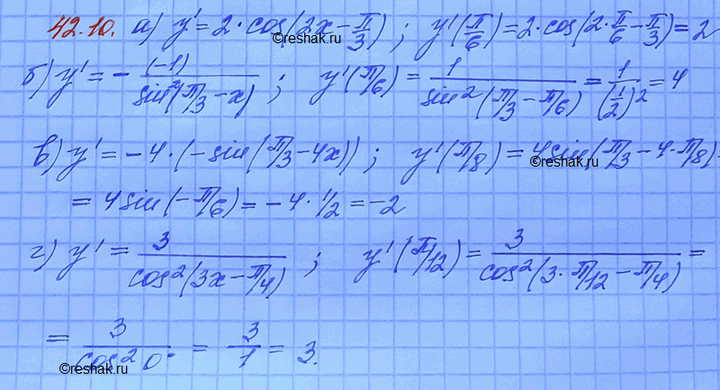 42.10. а) y' = 2·cos(2x − π/3) ; y'(π/6) = 2·cos(2·π/6 − π/3) = 2
©reshak.ru
б) y' = − (−1)/sin²(π/3 − x) ; y'(π/6) = 1/sin²(π/3 − π/6) = 1/(1/2)² = 4
©reshak.ru
в) y' = −4·(−sin(π/3 − 4x)) ; y'(π/8) = 4sin(π/3 − 4·π/8) =
©reshak.ru
= 4sin(−π/6) = −4·1/2 = −2
г) y' = 3/cos²(3x − π/4) ; y'(π/12) = 3/cos²(3·π/12 − π/4) =
©reshak.ru
= 3/cos²0° = 3/1 = 3.
©reshak.ru